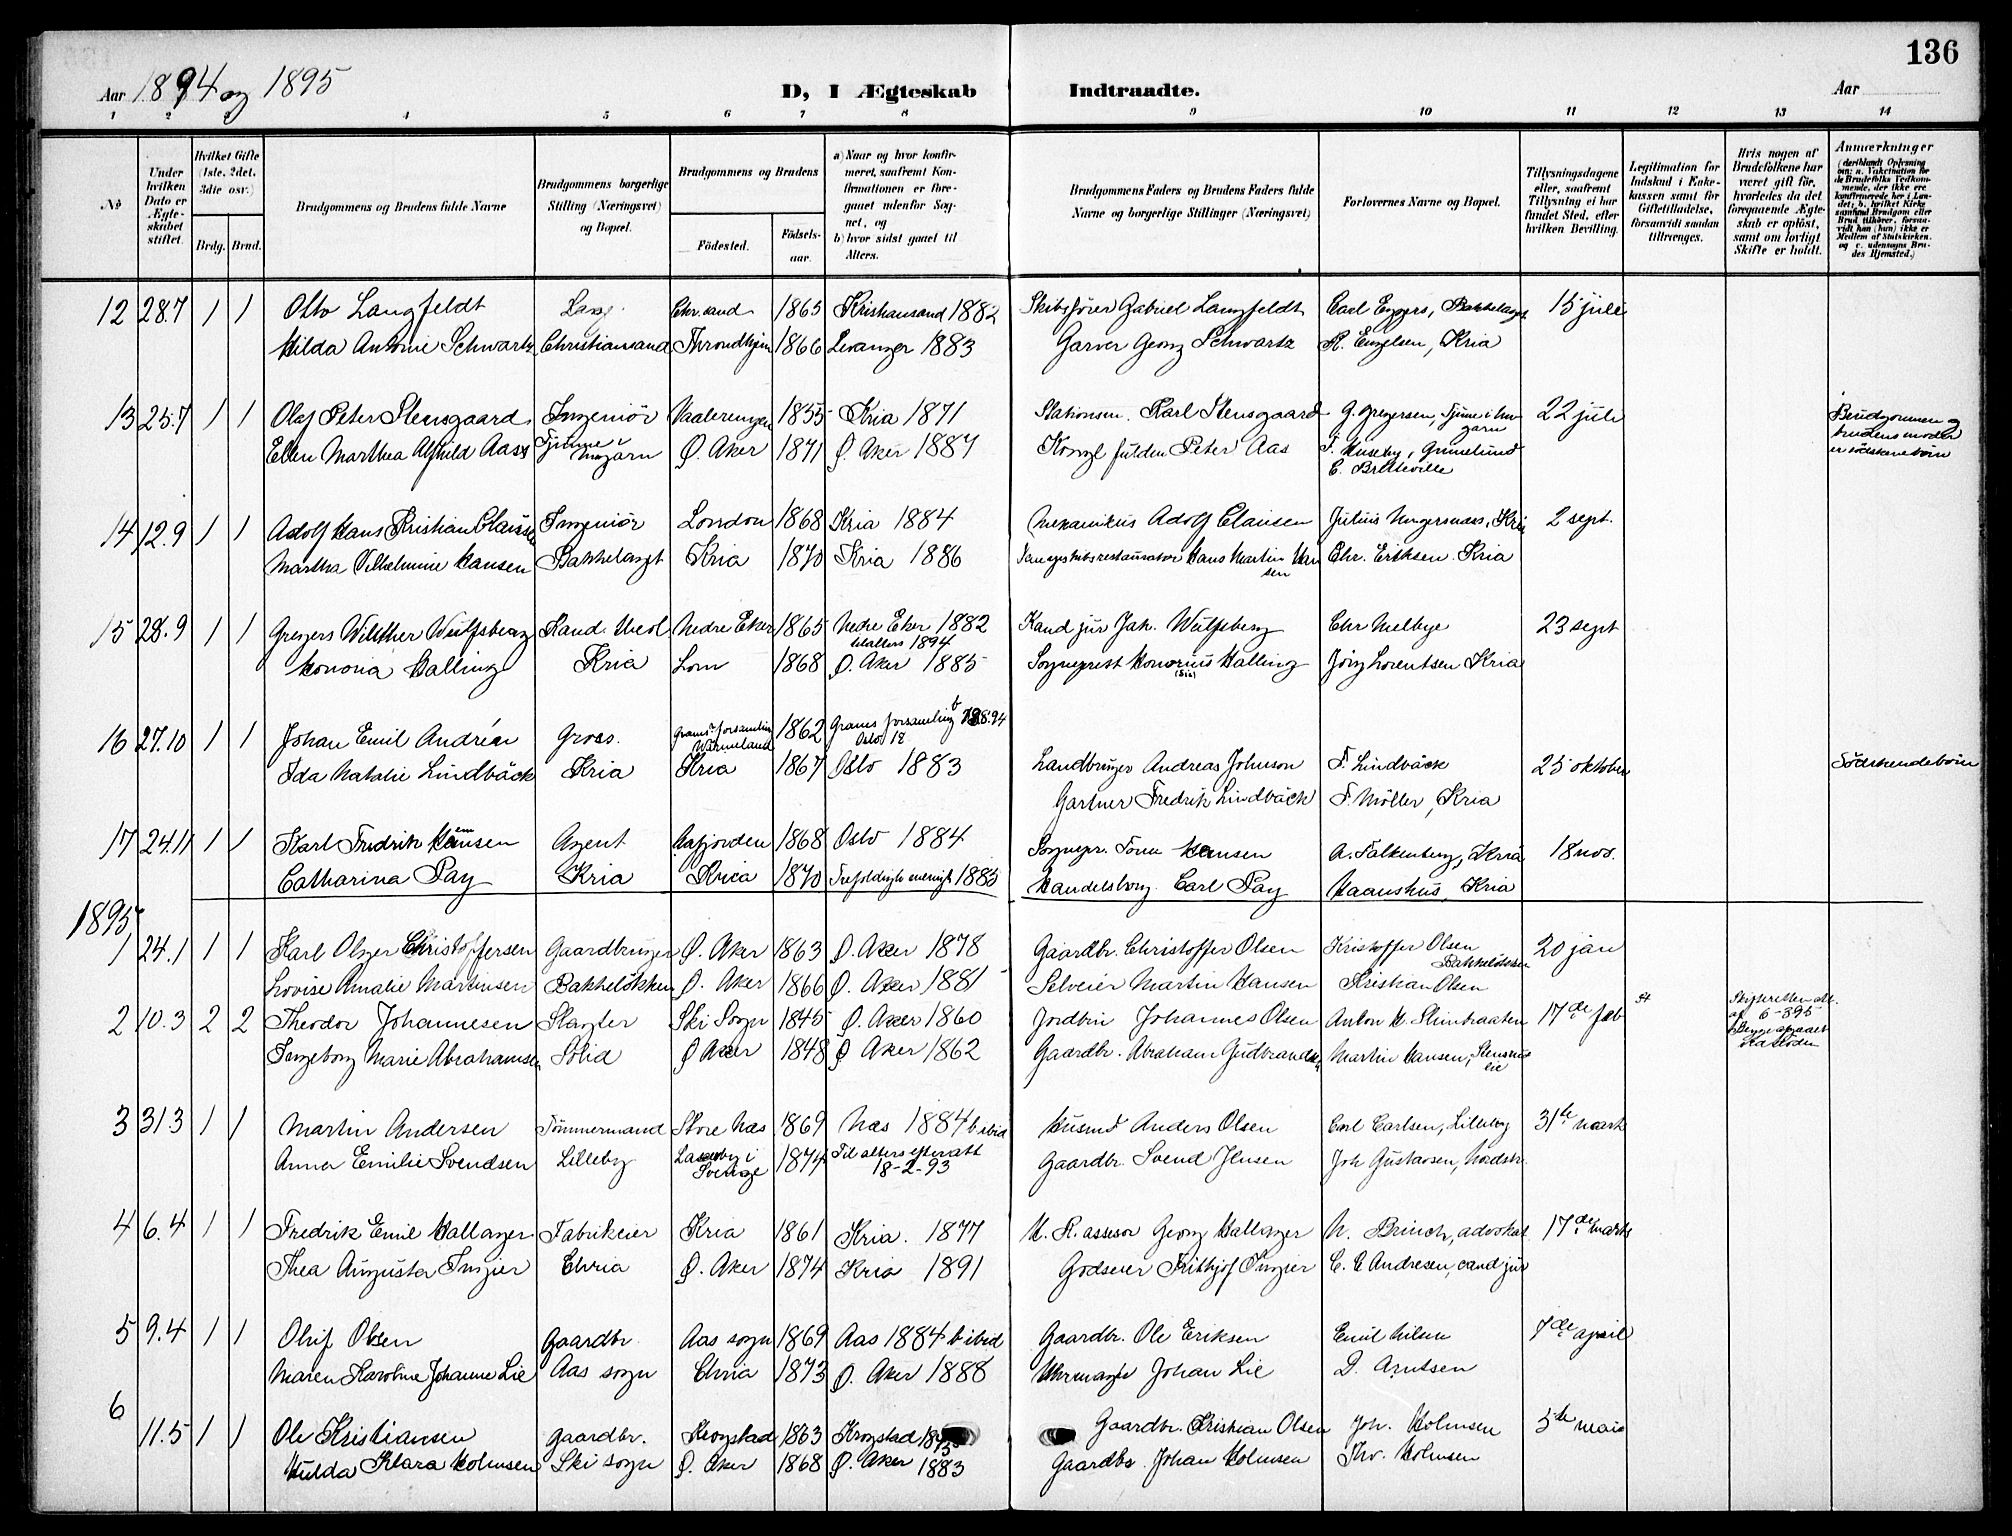 136
Aar 1894 og 1895 D, I Ægteskab Indtraadte. Aar
1 2 3 4 5 6 7 8 9 10 11 12 13 14
No
Under hvilken Dato er Ægteskabet stiftet.
Hvilket Gifte (1ste, 2det, 3die osv.)
Brdg. Brud.
Brudgommens og Brudens fulde Navne
Brudgommens borgerlige Stilling (Næringsvei) og Bopæl.
Brudgommens og Brudens
Fødested. Fødselsaar.
a) Naar og hvor konfirmeret, saafremt Konfirmationen er foregaaet udenfor Sognet, og
b) hvor sidst gaaet til Alters.
Brudgommens Faders og Brudens Faders fulde Navne og borgerlige Stillinger (Næringsvei)
Forlovernes Navne og Bopæl.
Tillysningsdagene eller, saafremt Tillysning ei har fundet Sted, efter hvilken Bevilling.
Legitimation for Indskud i Enkekassen samt for Giftetilladelse, forsaavidt saadan tiltrænges.
Hvis nogen af Brudefolkene har været gift før, hvorledes da det foregaaende Ægteskab er opløst, samt om lovligt Skifte er holdt.
Anmærkninger
(deriblandt Oplysning om: a. Vakcination for de Brudefolks Vedkommende, der ikke ere konfirmerede her i Landet; b. hvilket Kirkesamfund Brudgom eller Brud tilhører, forsaavidt han (hun) ikke er Medlem af Statskirken, og c. udensogns Brudes Hjemsted.)
12 28.7 1 1 Otto Langfeldt Chr.sand 1865 Kristiansand 1882 Skibsfører Gabriel Langfeldt Carl Eggers, Bakkelaget 15 juli
Hilda Antonie Schwartz Christiansand Throndhjem 1866 Levanger 1883 Garver Georg Schwartz R. Engelsen, Kria
13 25.7 1 1 Olaf Peter Stensgaard Ingeniør Vaalerengen 1855 Kria 1871 Stationsm. Karl Stensgaard G. Gregersen, Tjøme i Ungarn 22 juli Brudgommen og brudens moder er södskenebörn
Ellen Marthea Alfhild Aass Ungarn Ø. Aker 1871 Ø. Aker 1887 Kongl fuldm Peter Aas
14 12.9 1 1 Adolf Hans Kristian Clausen Ingeniør London 1868 Kria 1884 Mekanikus Adolf Clausen Julius Ungersnæss, Kria 2 sept.
Martha Vilhelmine Hansen Bakkelaget Kria 1870 Kria 1886 Hans Martin Hansen Chr. Eriksen. Kria
15 28.9 1 1 Gregers Winther Wulfsberg Kand. theol Nedre Eker 1865 Nedre Eker 1882 Kand jur Jak. Wulfsberg Chr Melbye 23 sept
Honoria Halling Kria Lom 1868 Ø. Aker 1885 Sogneprest Honorius Halling (Sic) Jörg Lorentsen Kria
16 27.10 1 1 Johan Emil Andrén Gross. Grams forsamling Wärmeland 1862 Grams forsamling
Ida Natalie Lindbäck Kria Kria 1867 Oslo 1883 Landbruger Andreas Johnson F. Lindbäck 25 oktober Södskendebörn
Gartner Fredrik Lindbäck F. Möller, Kria
17 24.11 1 1 Karl Fredrik Hansen Agent Aafjorden 1868 Oslo 1884 Sognepr. A. Falkenberg, Kria 18 nov.
Catharina Fay Kria Kria 1870 Trefoldigh menigh 1885 Handelsborg. Carl Fay Kria
1895
1 24.1 1 1 Karl Olger Christoffersen Gaardbruger Ø. Aker 1863 Ø. Aker 1878 Gaardbr. Christoffer Olsen Kristoffer Olsen Bakkeløkken 20 jan
Lovise Amalie Martinsen Bakkeløkken Ø. Aker 1866 Ø. Aker 1881 Selveier Martin Hansen Kristian Olsen
2 10.3 2 2 Theodor Johannesen Slagter Ski Sogn 1845 Ø. Aker 1860 Jordbr Johannes Olsen 17de feb
Ingeborg Marie Abrahamsen Solid Ø Aker 1848 Ø Aker 1862 Gaardbr. Abraham Gudbrandsen Martin Hansen,
3 31.3 1 1 Martin Andersen Tømmermand Store Næs 1869 Næs 1884 b ibid Husmd Anders Olsen Carl Carlsen, Lilleby 31te marts
Anna Emilie Svendsen Lilleby Sverige 1874 Til alters efter att 18-2-93 Gaardbr. Svend Jensen Joh Gustavsen, Nordstr.
4 6.4 1 1 Fredrik Emil Hallager Fabrikeier Kria 1861 Kria. 1877 H. R. assesor Georg Hallager N. Brinch, advokat 17de marts
Thea Augusta Ingier Chria Ø. Aker 1874 Kria 1891 Godseier Frithjof Ingier C. E Andresen, cand jur
5 9.4 1 1 Oluf Olsen Gaardbr. Aas sogn 1869 Aas 1884 b ibid Gaardbr. Ole Eriksen Emil Nilsen 7de april
Maren Karoline Johanne Lie Aas sogn Chria 1873 Ø. Aker 1888 Uhrmager Johan Lie D. Arntsen
6 11.5 1 1 Ole Kristiansen Gaardbr. Krogstad 1863 Krogstad Gaardbr. Kristian Olsen Joh. Holmsen 5te mai
Hulda Klara Holmsen Ski sogn Ø. Aker 1868 Ø. Aker 1883 Gaardbr. Johan Holmsen Thv. Holmsen